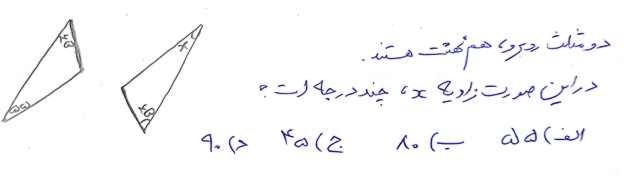 دو مثلث روبرو، هم نهشت هستند.
در این صورت زاویه x، چند درجه است؟
الف) ۵۵ ب) ۸۰ ج) ۴۵ د) ۹۰
۴۵
۵۵
x
۴۵